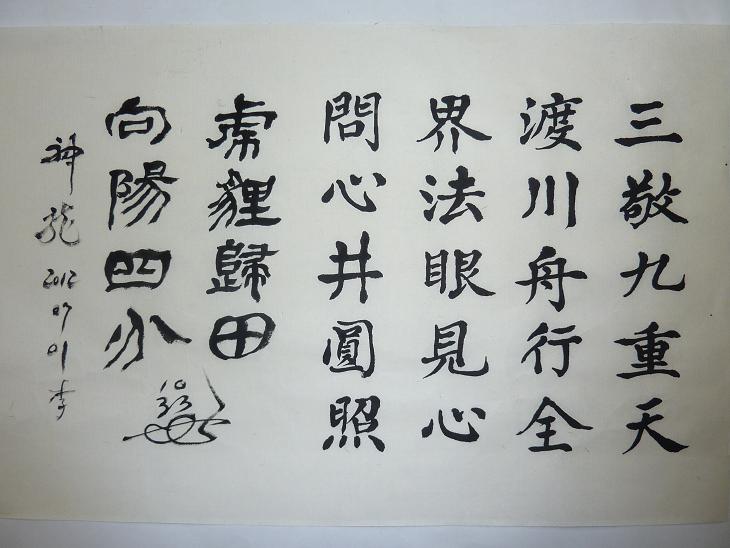 三敬九重天
渡川舟行全
界法眼見心
問心井圓照
貍歸田
向陽四分
神龍 2012 07 01 李